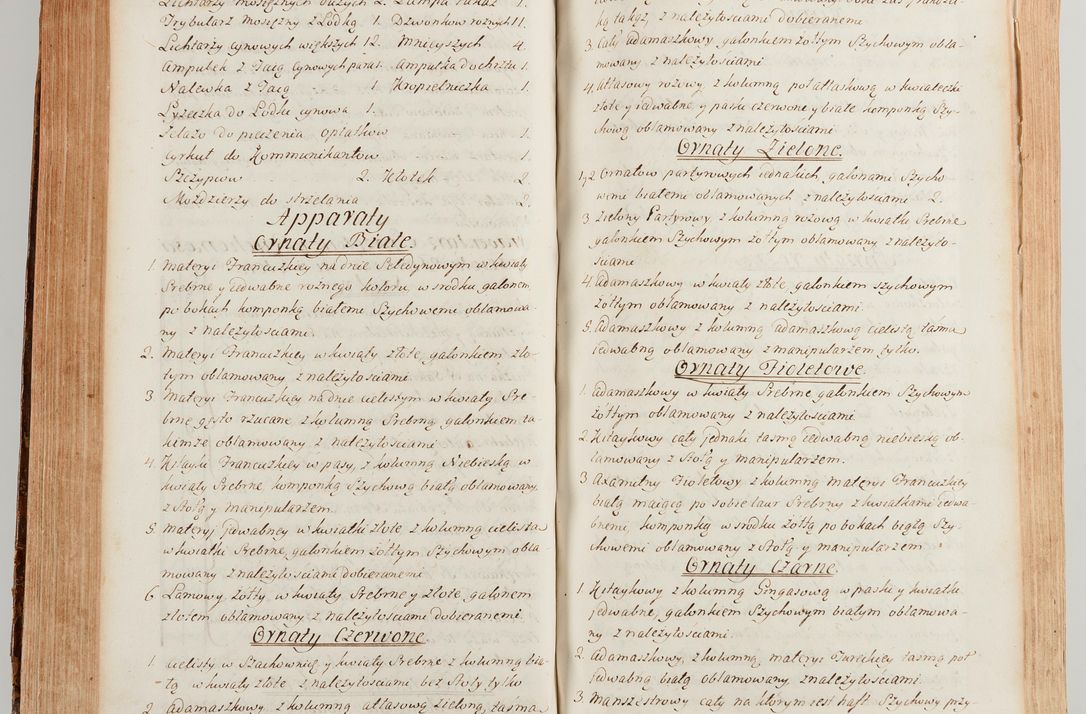 Lichtarzy mosiężnych dużych 2. Lampa także 1.
Trybularz Mosiężny z Łodką 1. Dzwonkow roznych 11.
Lichtarzy cynowych większych 12. Mnieyszych 4.
Ampułek z Tacą Cynowych para 1. Ampułka do chrztu 1.
Nalewka z Tacą 1. Kropielniczka 1.
Łyżeczka do Łodki cynowa 1.
Żelazo do pieczenia opłatkow 1.
Cyrkuł do Kommunikantow 1.
Szczypiow 2. Młotek 2.
Moździerzy do strzelania 2.
Apparaty
Ornaty Białe.
1. Materyi Francuzkiey na dnie Seledynowym w kwiaty
Srebrne y jedwabne roznego koloru, w srodku galonem
po bokach komponką białemi Szychowemi oblamowa-
ny z należytościami.
2. Materyi Francuzkiey w kwiaty złote, galonkiem żół-
tym oblamowany z należytościami
3 Materyi Francuzkiey na dnie cielistym w kwiaty Sre-
brne gęsto rzucane z kolumną Srebrną galonkiem ta-
kimże oblamowany z należytościami
4. Kitayki Francuzkiey w pasy, z kolumną Niebieską w
kwiaty Srebrne komponką Szychową białą oblamowany
z Stołą y manipularzem.
5 Materyi jedwabney w kwiatki złote z kolumną cielista
w kwiatki Srebrne, galonkiem żółtym Szychowym obla-
mowany z należytościami dobieranemi
6 Lamowy żółty w kwiaty Srebrne y złote, galonem
złotem oblamowany z należytościami dobieranemi
Ornaty Czerwone.
1. cielisty w Szachownicę y kwiaty Srebrne z kolumną bia-
łą w kwiaty złote z należytościami bez Stoły tylko
2 adamaszkowy z kolumną atłasową zieloną, taśmą
ką takąż, z należytościami dobieranemi
3 Cały adamaszkowy, galonkiem żółtym Szychowym obla-
mowany z należytościami
4. Atłasowy rożowy z kolumną połatłaskową w kwiateczki
złote y jedwabne, y paski czerwone y białe komponką Szy-
chową oblamowany z należytościami
Ornaty Zielone.
1,2 Ornatow partyrowych jednakich galonami Szycho
wemi białemi oblamowanych z należytościami 2.
3 Zielony Partyrowy z kolumną rożową w kwiatki Srebrne
galonkiem Szychowym żółtym oblamowany z należyto-
ściami
4 Adamaszkowy w kwiaty złote, galonkiem szychowym
żółtym oblamowany z należytościami.
5. Adamaszkowy z kolumną adamaszkową cielistą, taśmą
jedwabną oblamowany z manipularzem tylko.
Ornaty Fioletowe
1. Adamaszkowy w kwiaty Srebrne galonkiem Szychowym
żółtym oblamowany z należytościami
2. Kitaykowy cały jednaki taśmą jedwabną niebieską ob-
lamowany z Stołą y manipularzem.
3 Axamitny Fioletowy z kolumną materyi Francuzkiey
białą maiącą po sobie laur Srebrny z kwiatkami jedwa-
bnemi, komponką w srodku żółtą po bokach białą Szy-
chowemi oblamowany z Stołą y manipularzem
Ornaty Czarne.
1. Kitaykowy z kolumną Gingasową w paski y kwiatki
jedwabne, galonkiem Szychowym białym oblamowa-
ny z należytościami.
2. Adamaszkowy, z kolumną, materyi Tureckiey taśmą poł
jedwabną białą oblamowany, z należytościami.
3. Manszestrowy cały na ktorym jest haft Szychowy przy